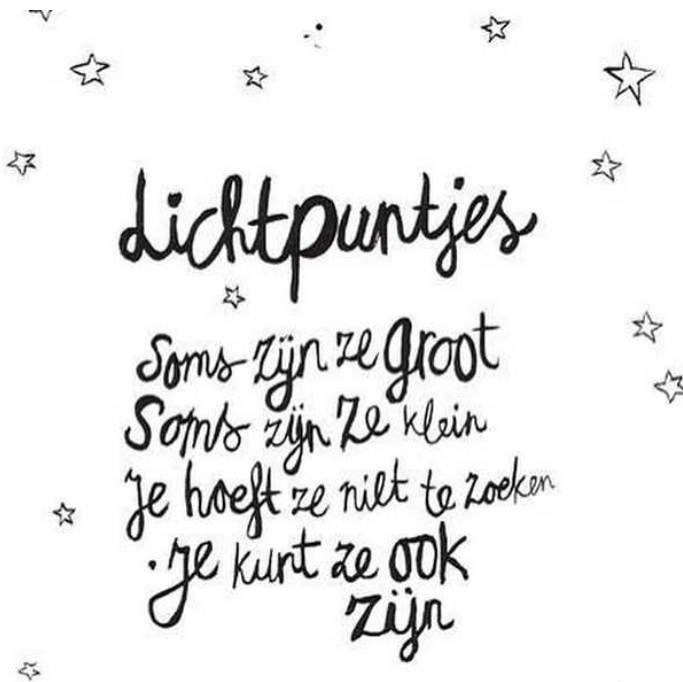 Lichtpuntjes
Soms zijn ze groot
Soms zijn ze klein
je hoeft ze niet te zoeken
je kunt ze ook
zijn